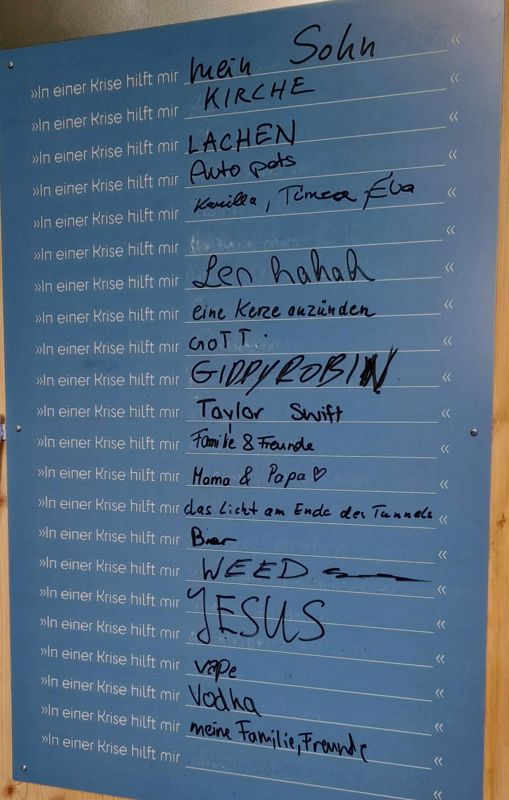 »In einer Krise hilft mir mein Sohn «
»In einer Krise hilft mir KIRCHE «
»In einer Krise hilft mir LACHEN «
»In einer Krise hilft mir Auto pets «
»In einer Krise hilft mir Kamilla, Timea, Eva «
»In einer Krise hilft mir «
»In einer Krise hilft mir Len hahah «
»In einer Krise hilft mir eine Kerze anzünden «
»In einer Krise hilft mir GOTT. «
»In einer Krise hilft mir GIDDY ROBIN «
»In einer Krise hilft mir Taylor Swift «
»In einer Krise hilft mir Familie & Freunde «
»In einer Krise hilft mir Mama & Papa ♡ «
»In einer Krise hilft mir das Licht am Ende des Tunnels «
»In einer Krise hilft mir Bier «
»In einer Krise hilft mir WEED «
»In einer Krise hilft mir JESUS «
»In einer Krise hilft mir «
»In einer Krise hilft mir vape «
»In einer Krise hilft mir Vodka «
»In einer Krise hilft mir meine Familie, Freunde «
»In einer Krise hilft mir «